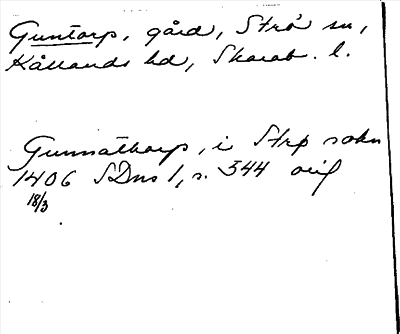 Guntorp, gård, Strö sn,
Kållands hd, Skarab. l.
Gunnathorp, i Strø sokn
1406 SDns 1, s. 544 orig
18/3